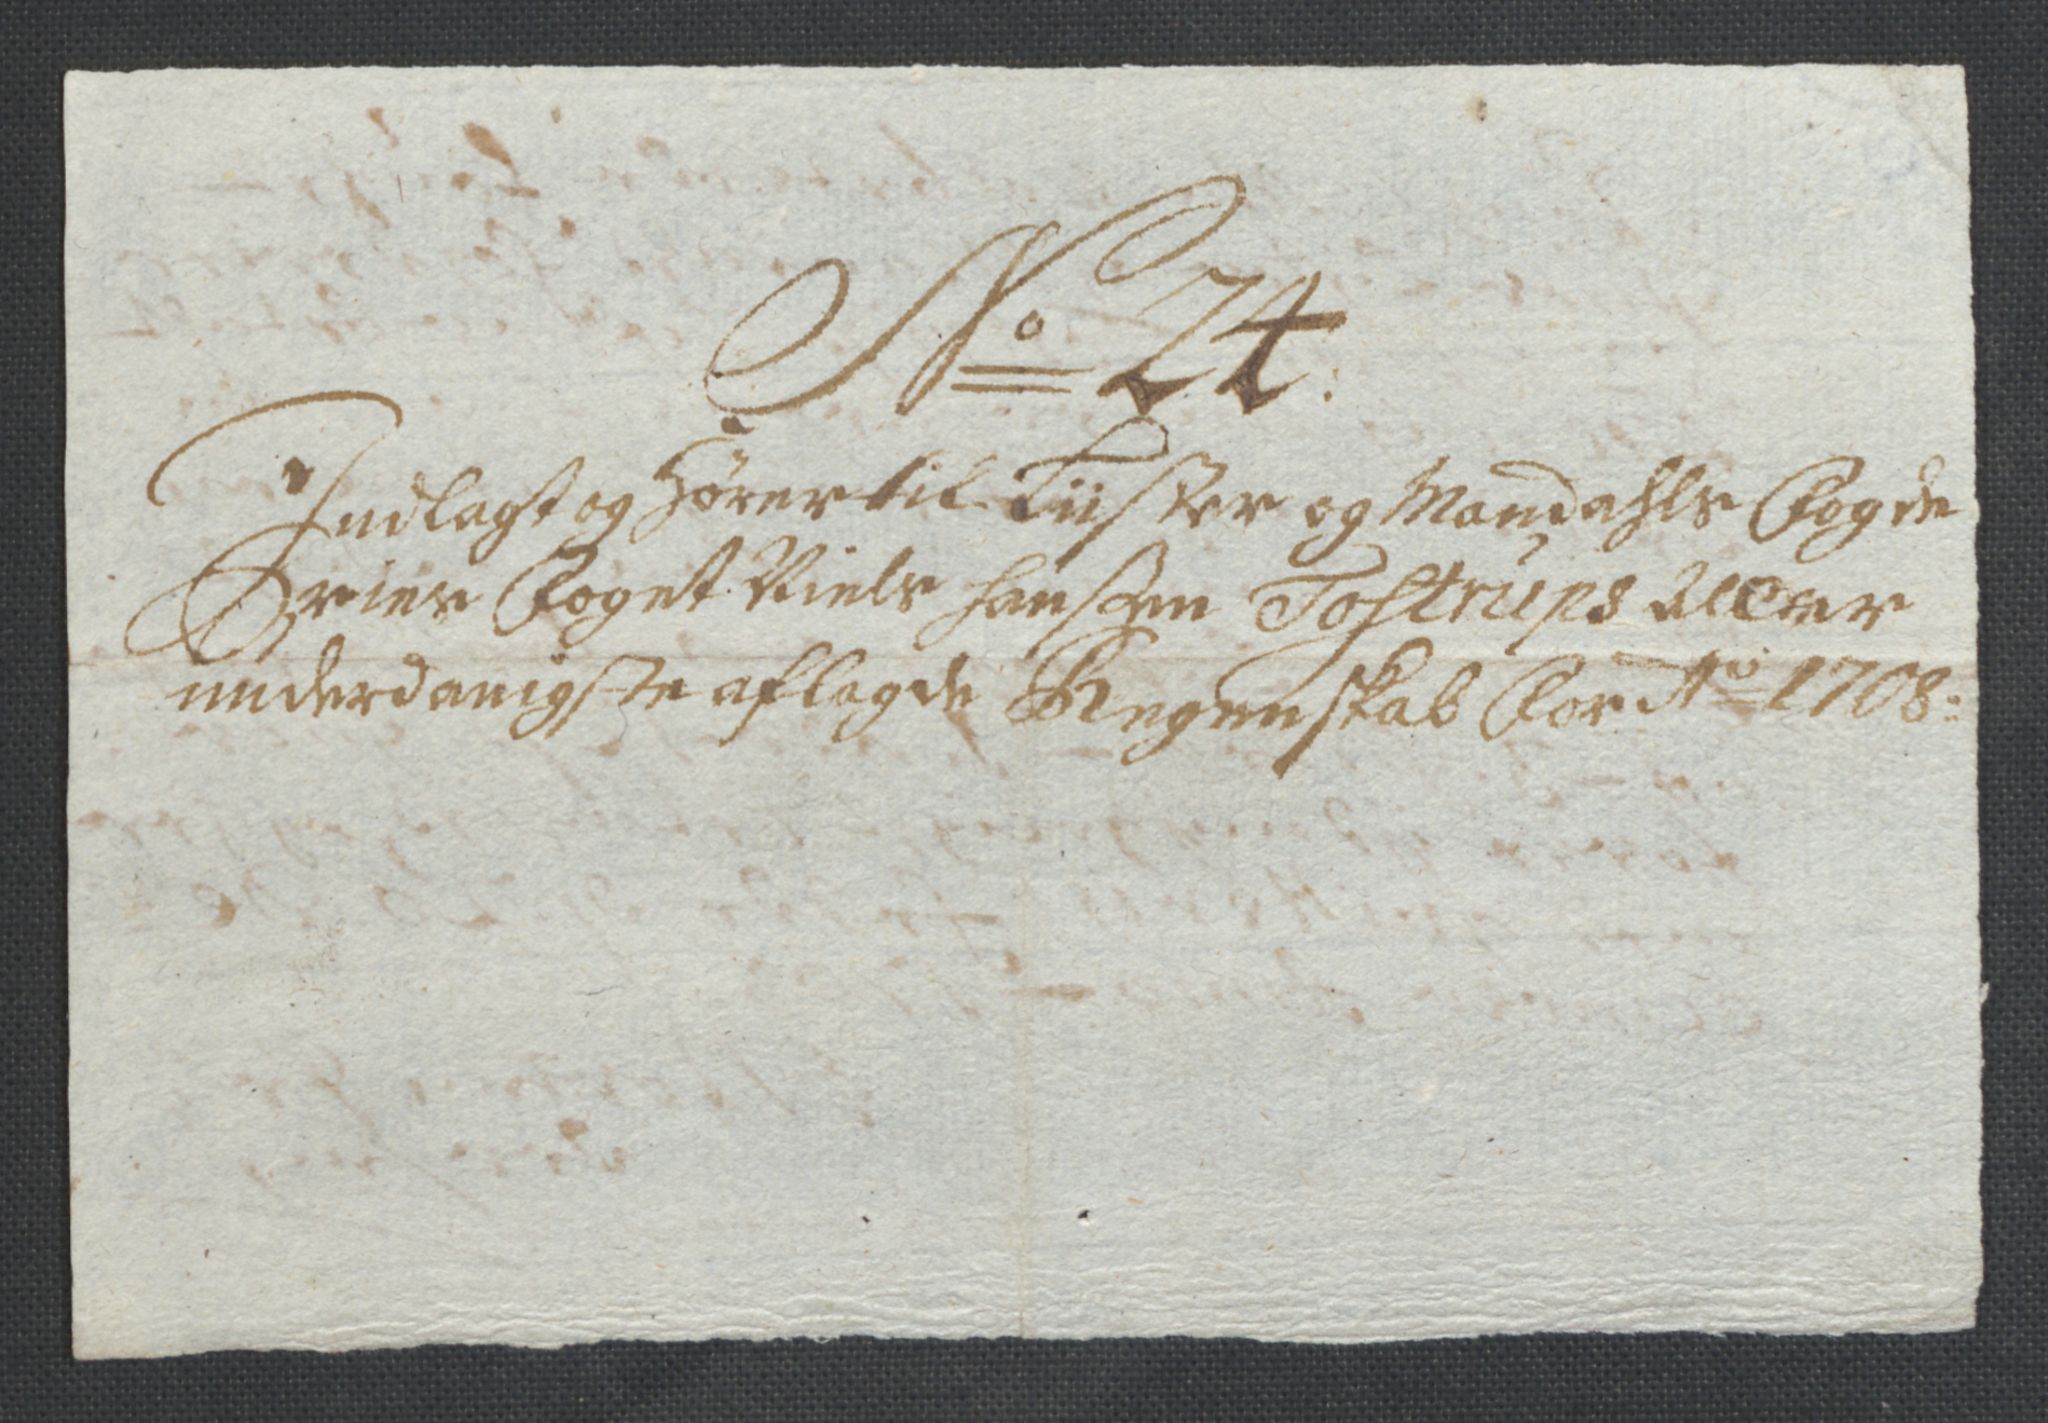 No 24.
Indlagt og Hörer til Lüster og Mandahls Fogde
Erier Foget Niels Hanssen Tostrups aller
underdanigste aflagde Regenskab For Ao 1708: